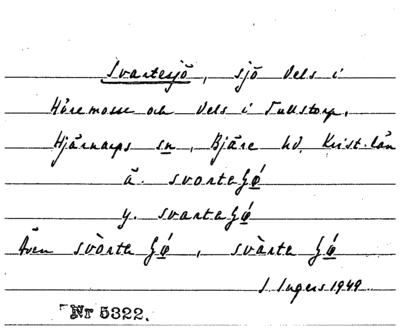 Svartesjö, sjö dels i
Håremosse och dels i Tullstorp,
Hjärnarps sn, Bjäre hd. Krist. län
ä. svortaʃǿ
y. svartaʃǿ
Även svòrta ʃǿ, svàrta ʃǿ
I. Ingers 1949
Nr 5322.